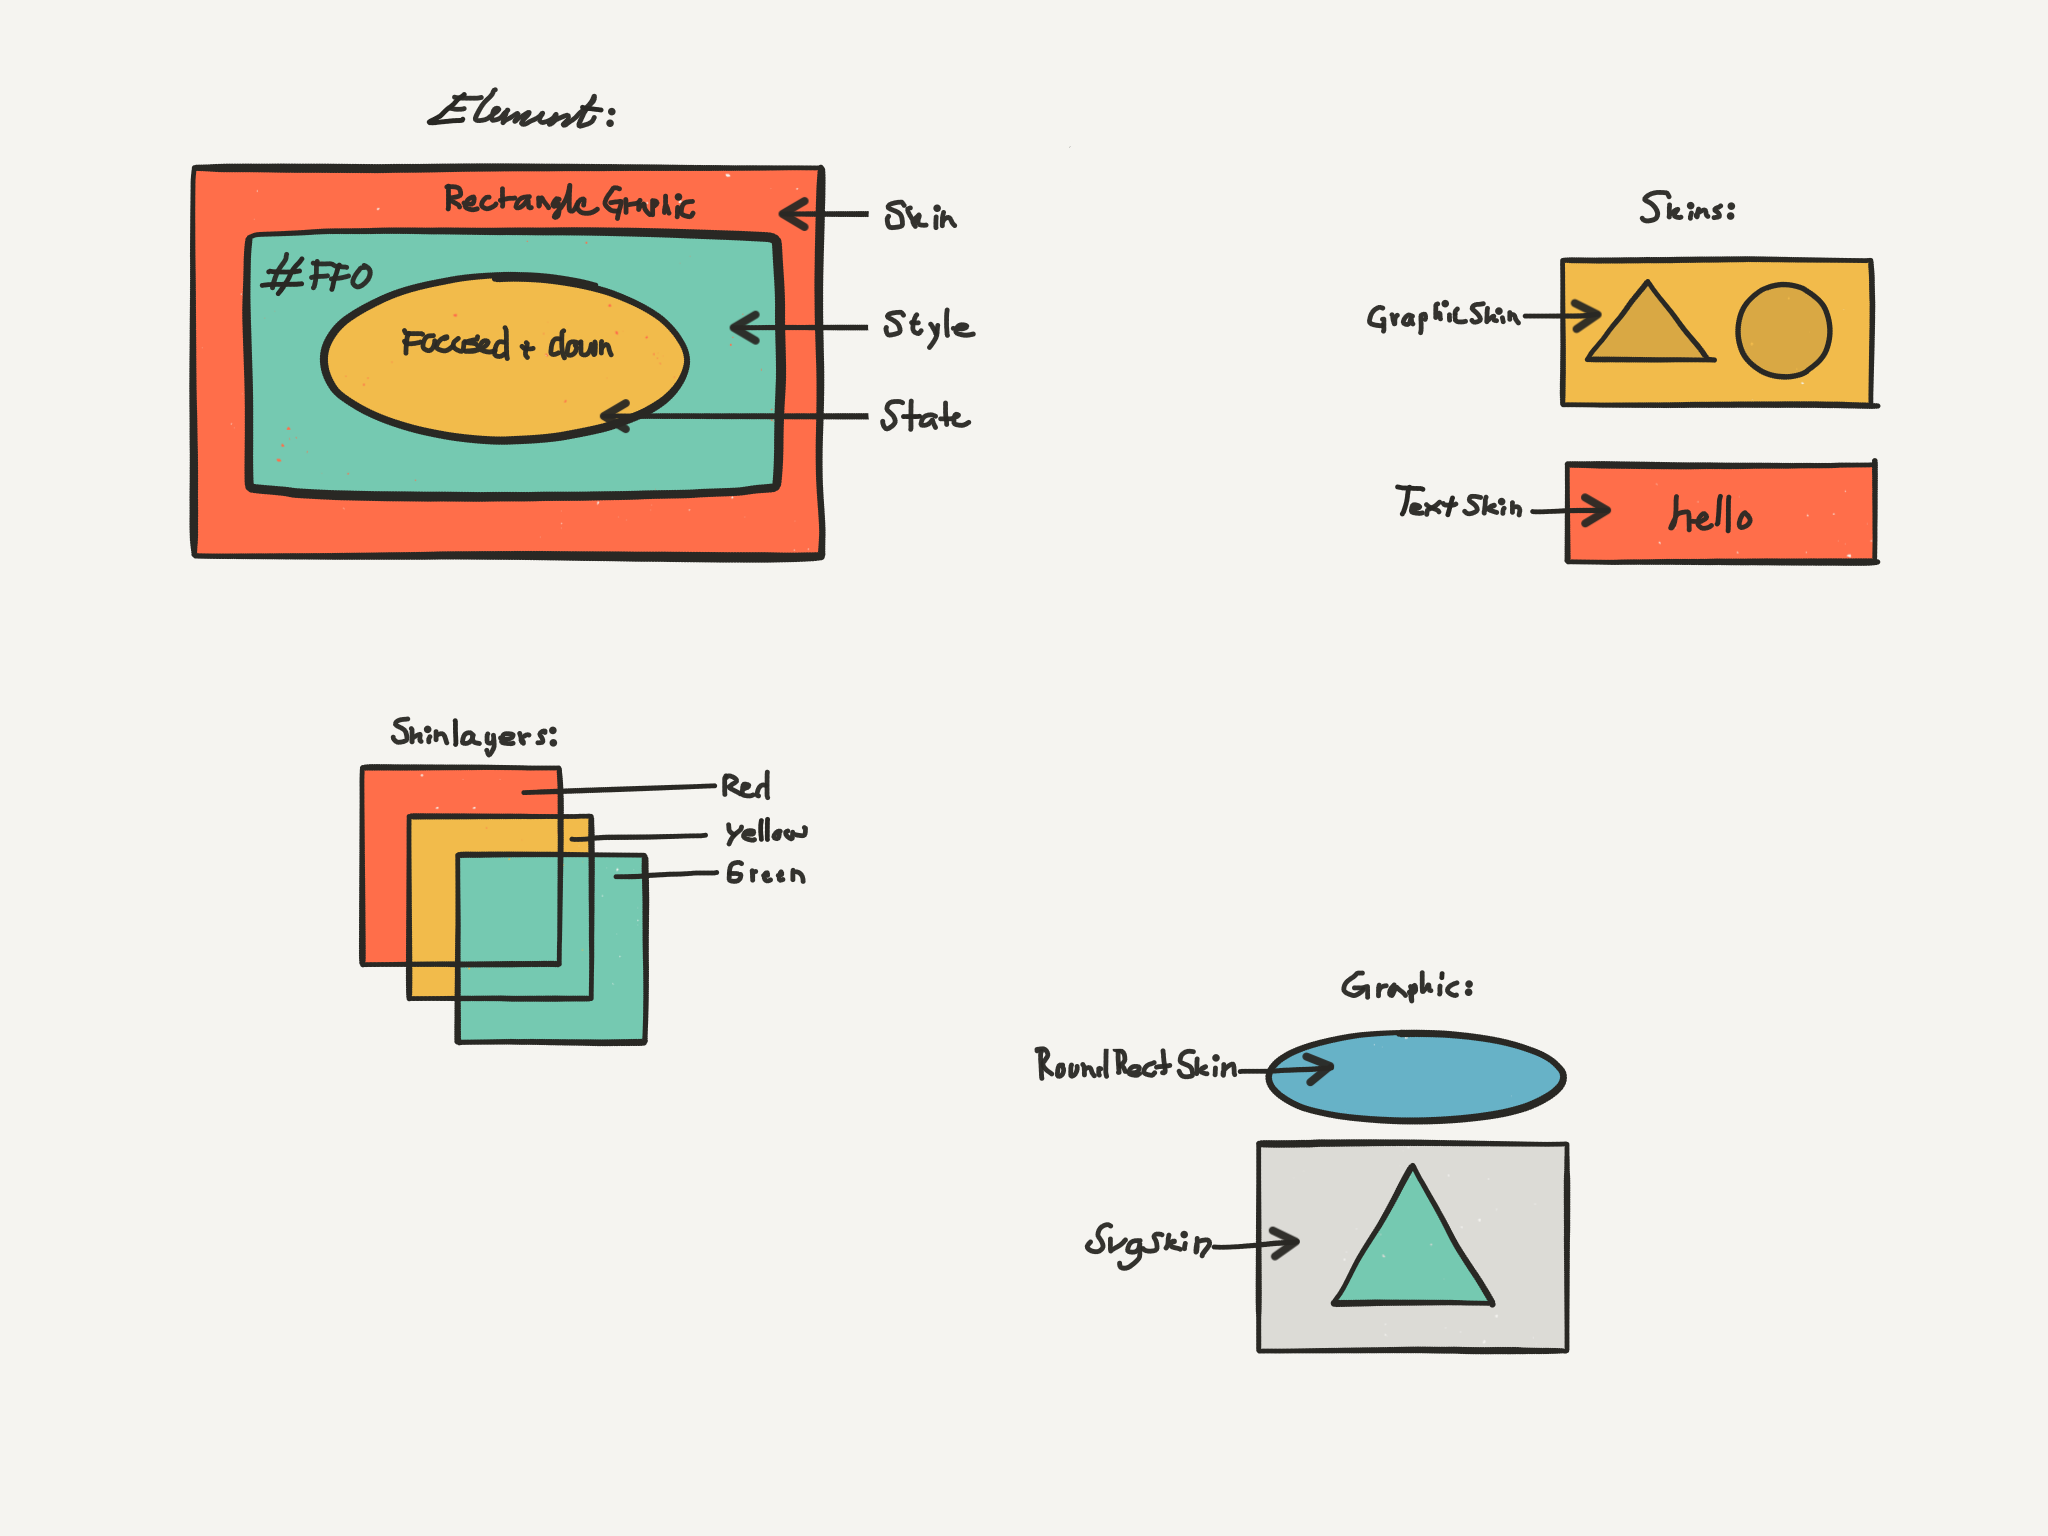 Element:
RectangleGraphic
Skin
#FF0
Style
Focused + down
State
Skins:
GraphicSkin
TextSkin
hello
Skinlayers:
Red
Yellow
Green
Graphic:
RoundRectSkin
SvgSkin